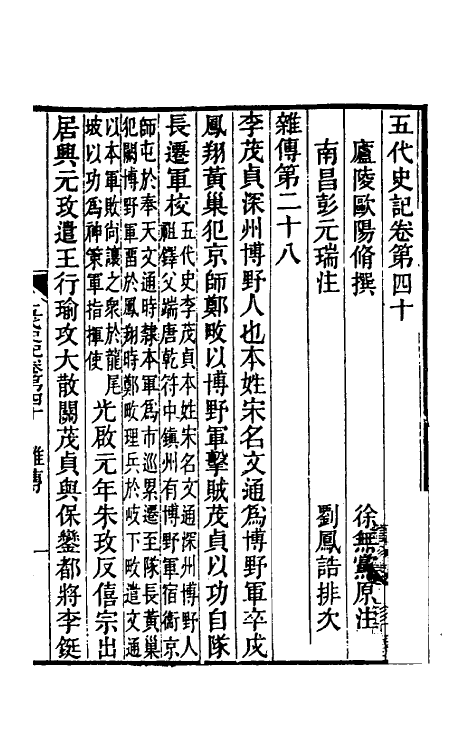 五代史記卷第四十
廬陵歐陽脩撰 徐無黨原注
南昌彭元瑞注 劉鳳誥排次
雜傳第二十八
李茂貞深州博野人也本姓宋名文通爲博野軍卒戍
鳳翔黃巢犯京師鄭畋以博野軍擊賊茂貞以功自隊
長遷軍校
五代史李茂貞本姓宋名文通深州博野人
祖鐸父端唐乾符中鎮州有博野軍宿衛京
師屯於奉天文通時隸本軍爲市巡累遷至隊長黃巢
犯闕博野軍畱於鳳翔時鄭畋理兵於岐下畋遣文通
以本軍敗尚讓之衆於龍尾
坡以功爲神策軍指揮使
光啟元年朱玫反僖宗出
居興元玫遣王行瑜攻大散關茂貞與保鑾都將李鋋
雜傳
一